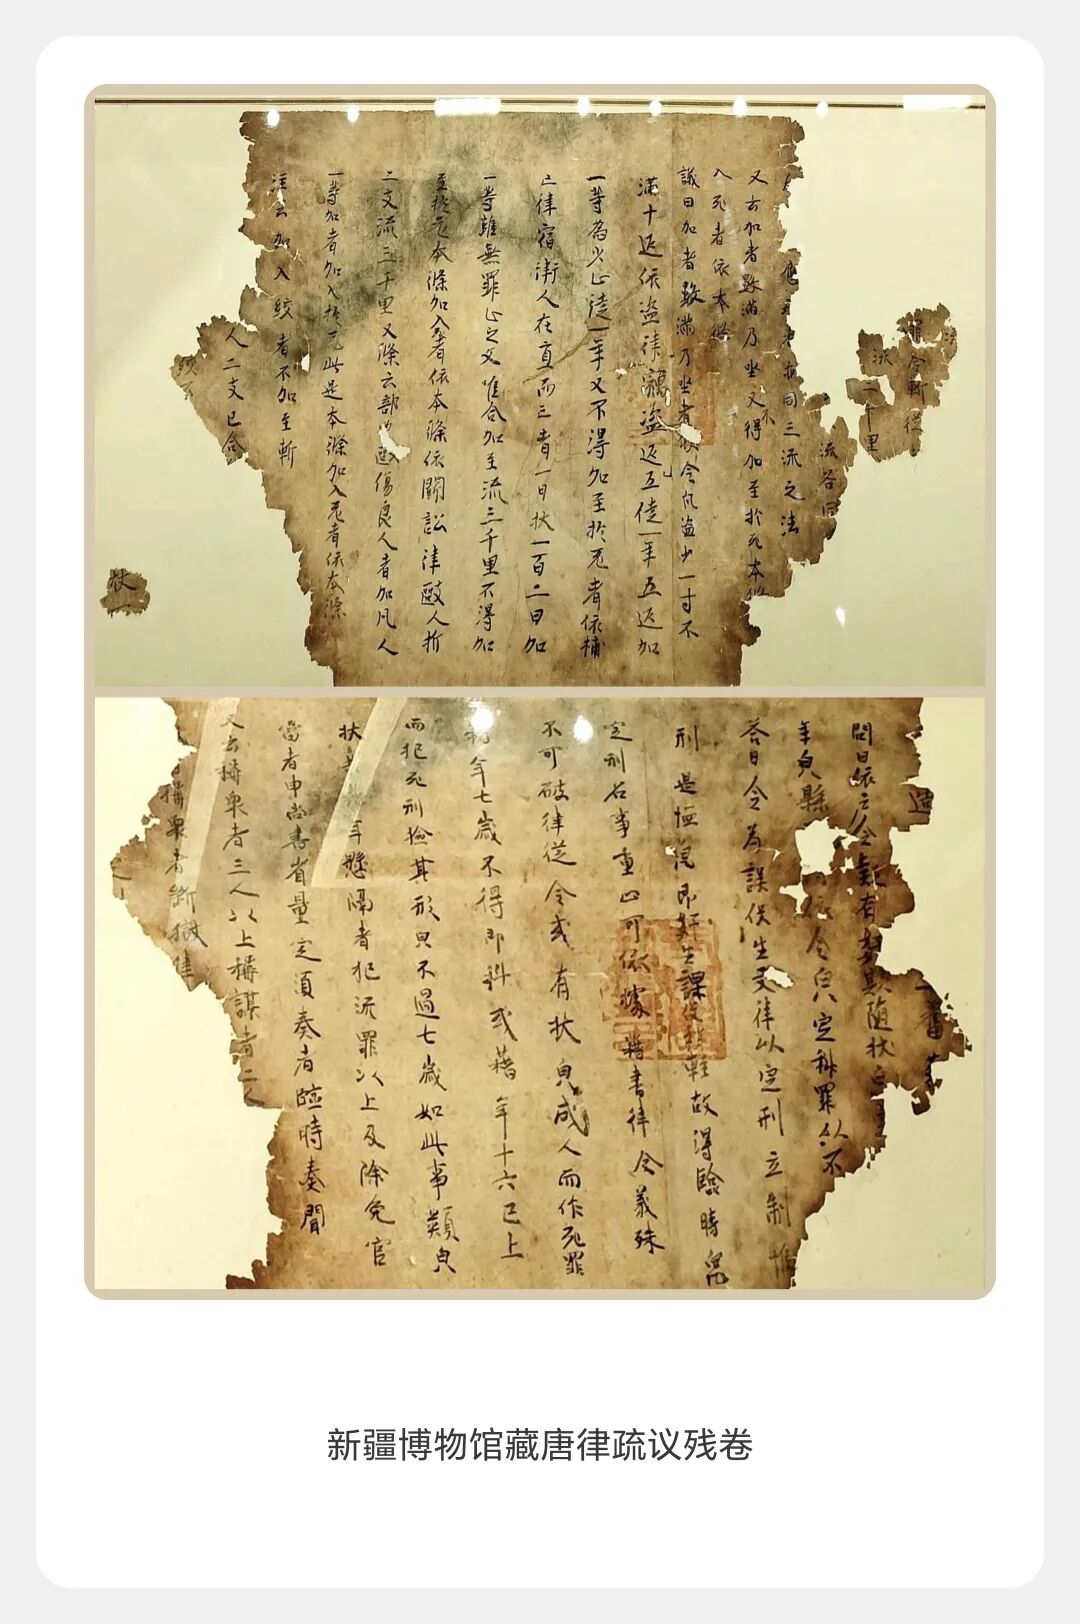 合斬從
二千里
流各同
同三流之法
又云加者數滿乃坐又不得加至於死本條
入死者依本條
議曰加者數滿乃坐者假令凡盜少一寸不
滿十疋依盜律竊盜疋五徒一年五疋加
一等為少止徒一年又不得加至於死者依捕
亡律宿衛人在直而亡者一日杖一百二日加
一等雖無罪止之文唯合加至流三千里不得加
至於死本條加入死者依本條依鬪訟律毆人折
二支流三千里又條云部曲毆傷良人者加凡人
一等加者加入於死此是本條加入死者依本條
注云加入絞者不加至斬
人二支已合
絞
杖一
問曰依令雖有欺隨狀
年皃縣依令皃定科罪以不
答曰令為課役生文律以定刑立制惟
刑是恒法即奸生課役稍輕故得臨時皃
定刑名事重止可依據籍書律令義殊
不可破律從令或有狀皃成人而作死罪
籍年七歲不得即科或籍年十六已上
而犯死刑驗其形皃不過七歲如此事類皃
狀年懸隔者犯流罪以上及除免官
當者申尚書省量定須奏者臨時奏聞
又云稱眾者三人以上稱謀者二人
稱眾者斷獄律
新疆博物馆藏唐律疏议残卷